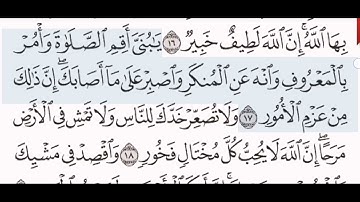 بِهَا ٱللَّهُ ۚ إِنَّ ٱللَّهَ لَطِيفٌ خَبِيرٌ ١٦ يَـٰبُنَىَّ أَقِمِ ٱلصَّلَوٰةَ وَأْمُرْ
بِٱلْمَعْرُوفِ وَٱنْهَ عَنِ ٱلْمُنكَرِ وَٱصْبِرْ عَلَىٰ مَآ أَصَابَكَ ۖ إِنَّ ذَٰلِكَ
مِنْ عَزْمِ ٱلْأُمُورِ ١٧ وَلَا تُصَعِّرْ خَدَّكَ لِلنَّاسِ وَلَا تَمْشِ فِى ٱلْأَرْضِ
مَرَحًا ۖ إِنَّ ٱللَّهَ لَا يُحِبُّ كُلَّ مُخْتَالٍ فَخُورٍ ١٨ وَٱقْصِدْ فِى مَشْيِكَ